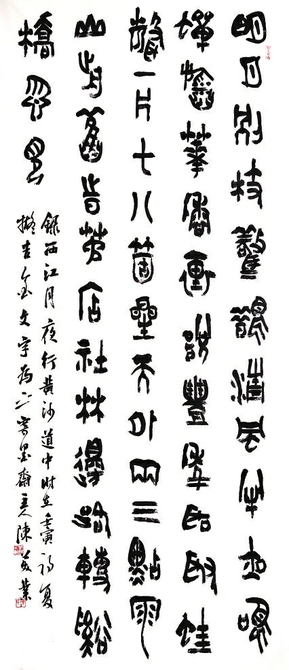 明月別枝驚鵲清風半夜鳴
蟬稻華香裏說豐年聽取蛙
聲一片七八箇星天外兩三點雨
山前舊時茅店社林邊路轉谿
橋忽見
錄西江月夜行黃沙道中時在壬寅初夏
擬吉金文字為之